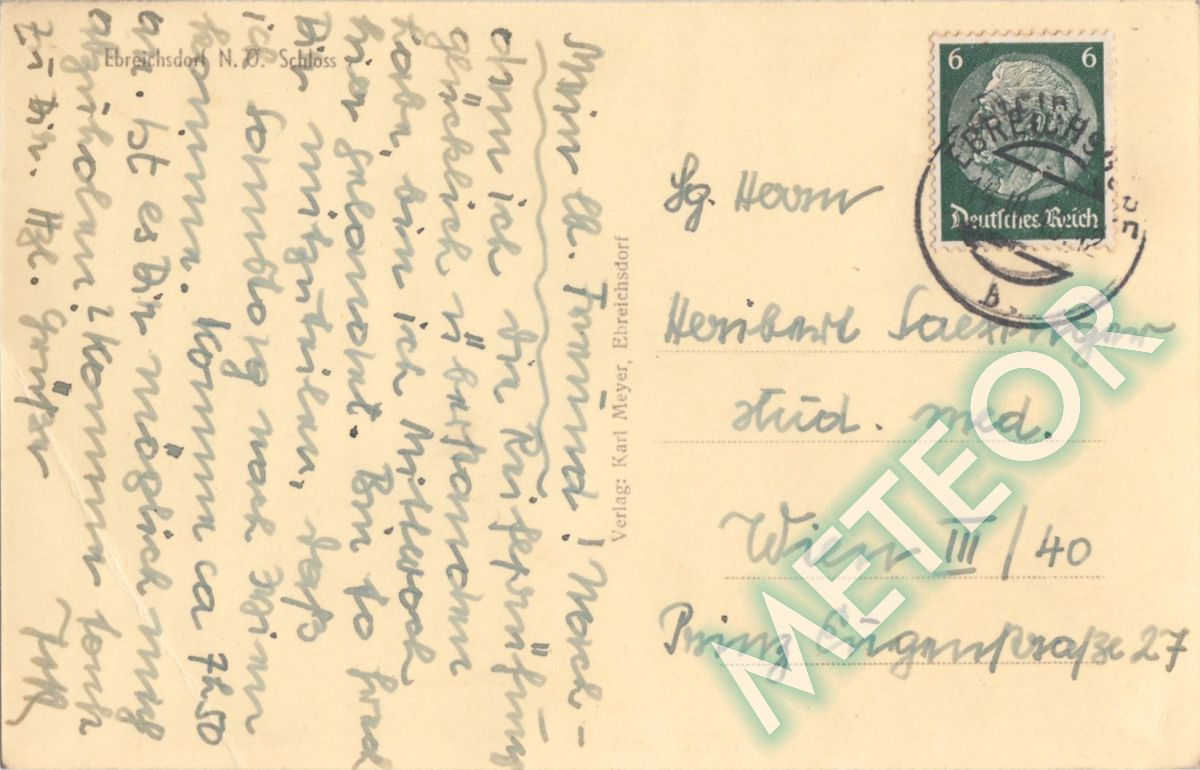 Ebreichsdorf N. Ö. Schloss
Mein lb. Freund! Nach-
dem ich die Reifeprüfung
glücklich überstanden
habe, bin ich Mittwoch
hier gelandet. Bin so frech
Dir mitzuteilen, daß
ich Sonntag nach Wien
komme. Komme ca 7h50
an. Ist es Dir möglich mich
abzuholen? Komme sonst
zu Dir. Hzl. Grüße
Verlag: Karl Meyer, Ebreichsdorf
6 6
Deutsches Reich
EBREICHSDORF
Sg. Herrn
Heribert
stud. med.
Wien III/40
Prinz Eugenstraße 27
METEOR